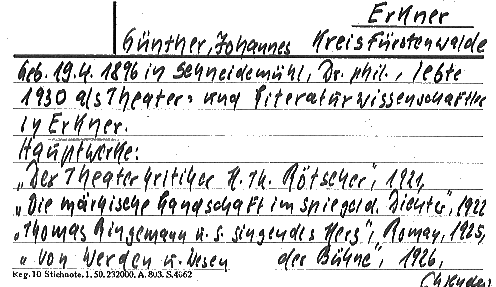 Erkner
Günther, Johannes Kreis Fürstenwalde
Geb. 19.4. 1896 in Schneidemühl, Dr. phil., lebte
1930 als Theater- und Literaturwissenschaftler
in Erkner.
Hauptwerke:
„Der Theaterkritiker H. Th. Rötscher", 1921,
„Die märkische Landschaft im Spiegel d. Dichter", 1922
„Thomas Ringemann u. s. singendes Herz", Roman, 1925,
„Von Werden u. Wesen der Bühne", 1926,
Keg. 10 Stichnote. 1, 50. 232000. A. 803. S. 4662